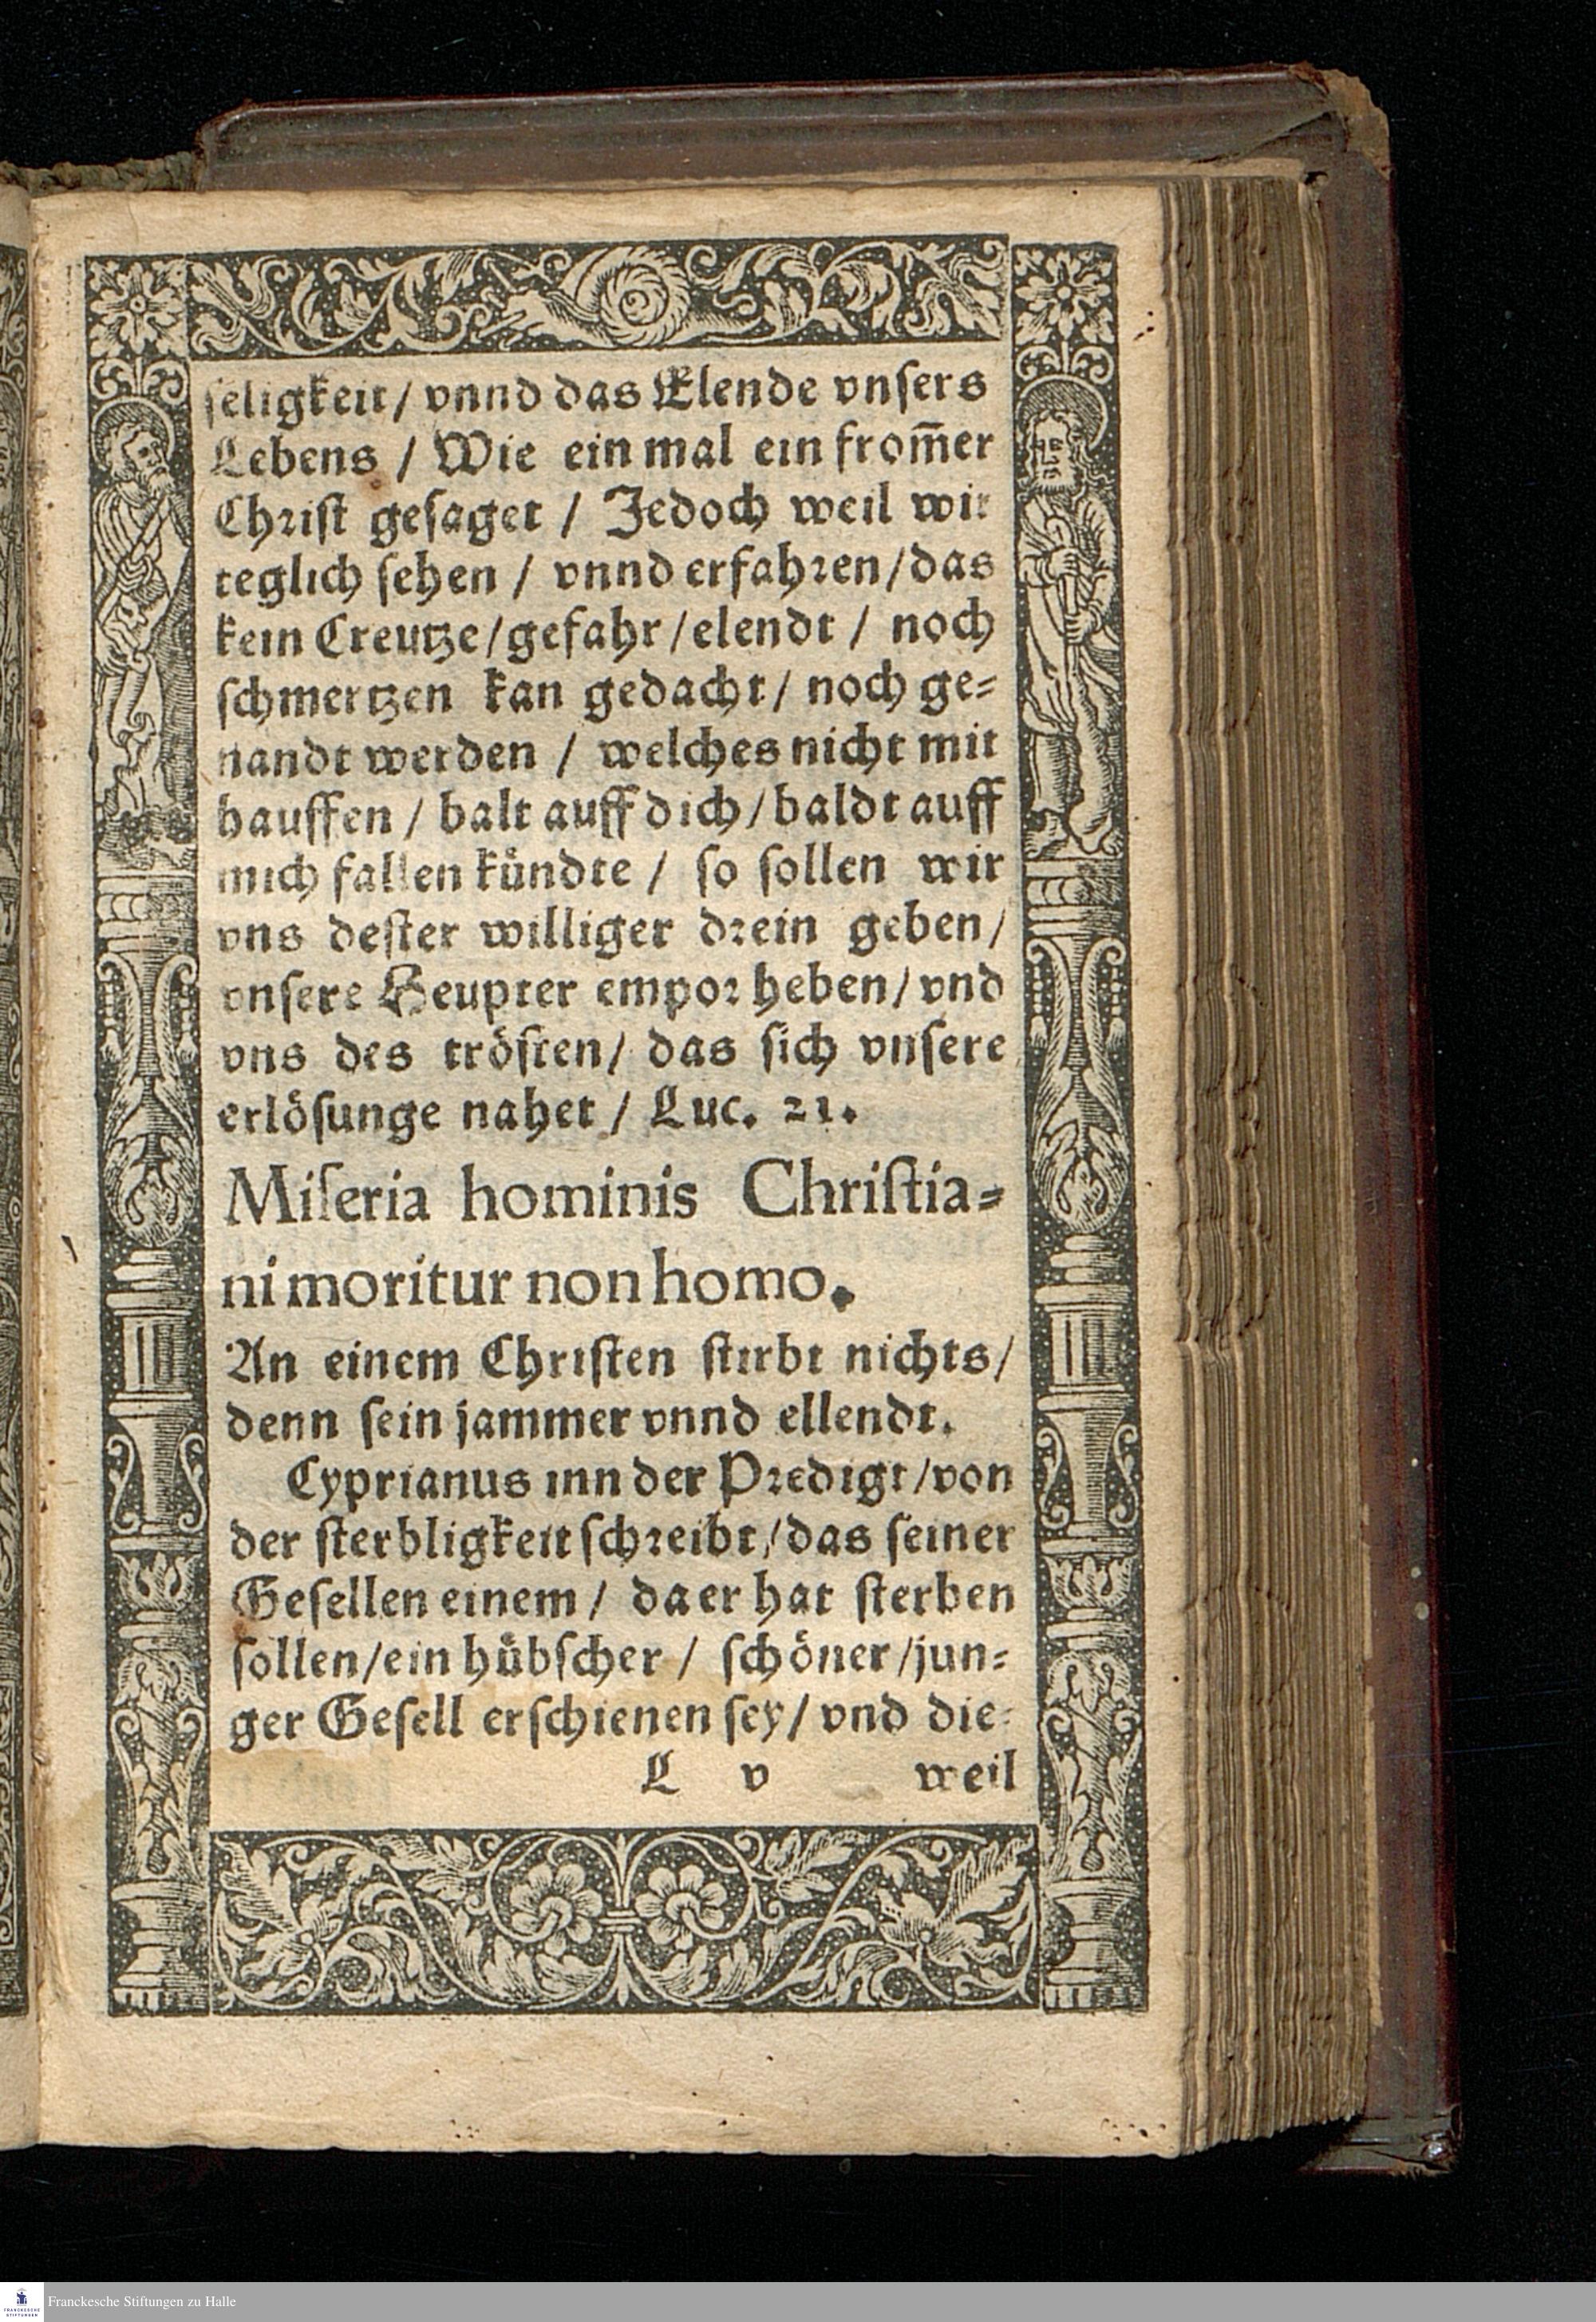 ſeligkeit / vnnd das Elende vnſers
Lebens / Wie ein mal ein from̄er
Chꝛiſt geſaget / Jedoch weil wir
teglich ſehen / vnnd erfahꝛen / das
kein Creutze / gefahr / elendt / noch
ſchmertzen kan gedacht / noch ge⸗
nandt werden / welches nicht mit
hauffen / balt auff dich / baldt auff
mich fallen kündte / ſo ſollen wir
vns deſter williger dꝛein geben /
vnſere Heupter empoꝛ heben / vnd
vns des tröſten / das ſich vnſere
erlöſunge nahet / Luc. 21.
Miſeria hominis Chriſtia⸗
ni moritur non homo.
An einem Chriſten ſtirbt nichts /
denn ſein jammer vnnd ellendt.
Cyprianus inn der Pꝛedigt / von
der ſterbligkeit ſchꝛeibt / das ſeiner
Geſellen einem / da er hat ſterben
ſollen / ein hübſcher / ſchöner / jun⸗
ger Geſell erſchienen ſey / vnd die⸗
L v weil
Franckesche Stiftungen zu Halle
FRANCKESCHE
STIFTUNGEN